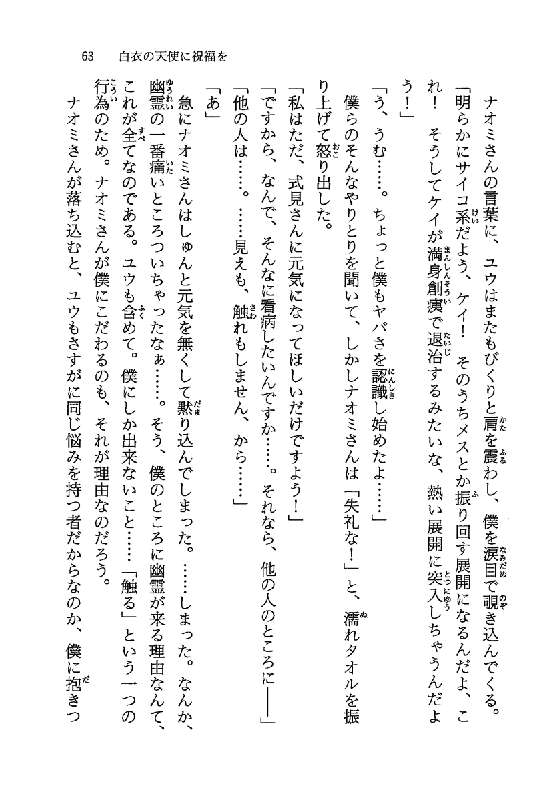 63　白衣の天使に祝福を
　ナオミさんの言葉に、ユウはまたもびくりと肩を震わし、僕を涙目で覗き込んでくる。
「明らかにサイコ系だよう、ケイ！　そのうちメスとか振り回す展開になるんだよ、こ
れ！　そうしてケイが満身創痍で退治するみたいな、熱い展開に突入しちゃうんだよ
う！」
「う、うむ……。ちょっと僕もヤバさを認識し始めたよ……」
　僕らのそんなやりとりを聞いて、しかしナオミさんは「失礼な！」と、濡れタオルを振
り上げて怒り出した。
「私はただ、式見さんに元気になってほしいだけですよう！」
「ですから、なんで、そんなに看病したいんですか……。それなら、他の人のところに──」
「他の人は……。……見えも、触れもしません、から……」
「あ」
　急にナオミさんはしゅんと元気を無くして黙り込んでしまった。……しまった。なんか、
幽霊の一番痛いところついちゃったなぁ……。そう、僕のところに幽霊が来る理由なんて、
これが全てなのである。ユウも含めて。僕にしか出来ないこと……「触る」という一つの
行為のため。ナオミさんが僕にこだわるのも、それが理由なのだろう。
　ナオミさんが落ち込むと、ユウもさすがに同じ悩みを持つ者だからなのか、僕に抱きつ